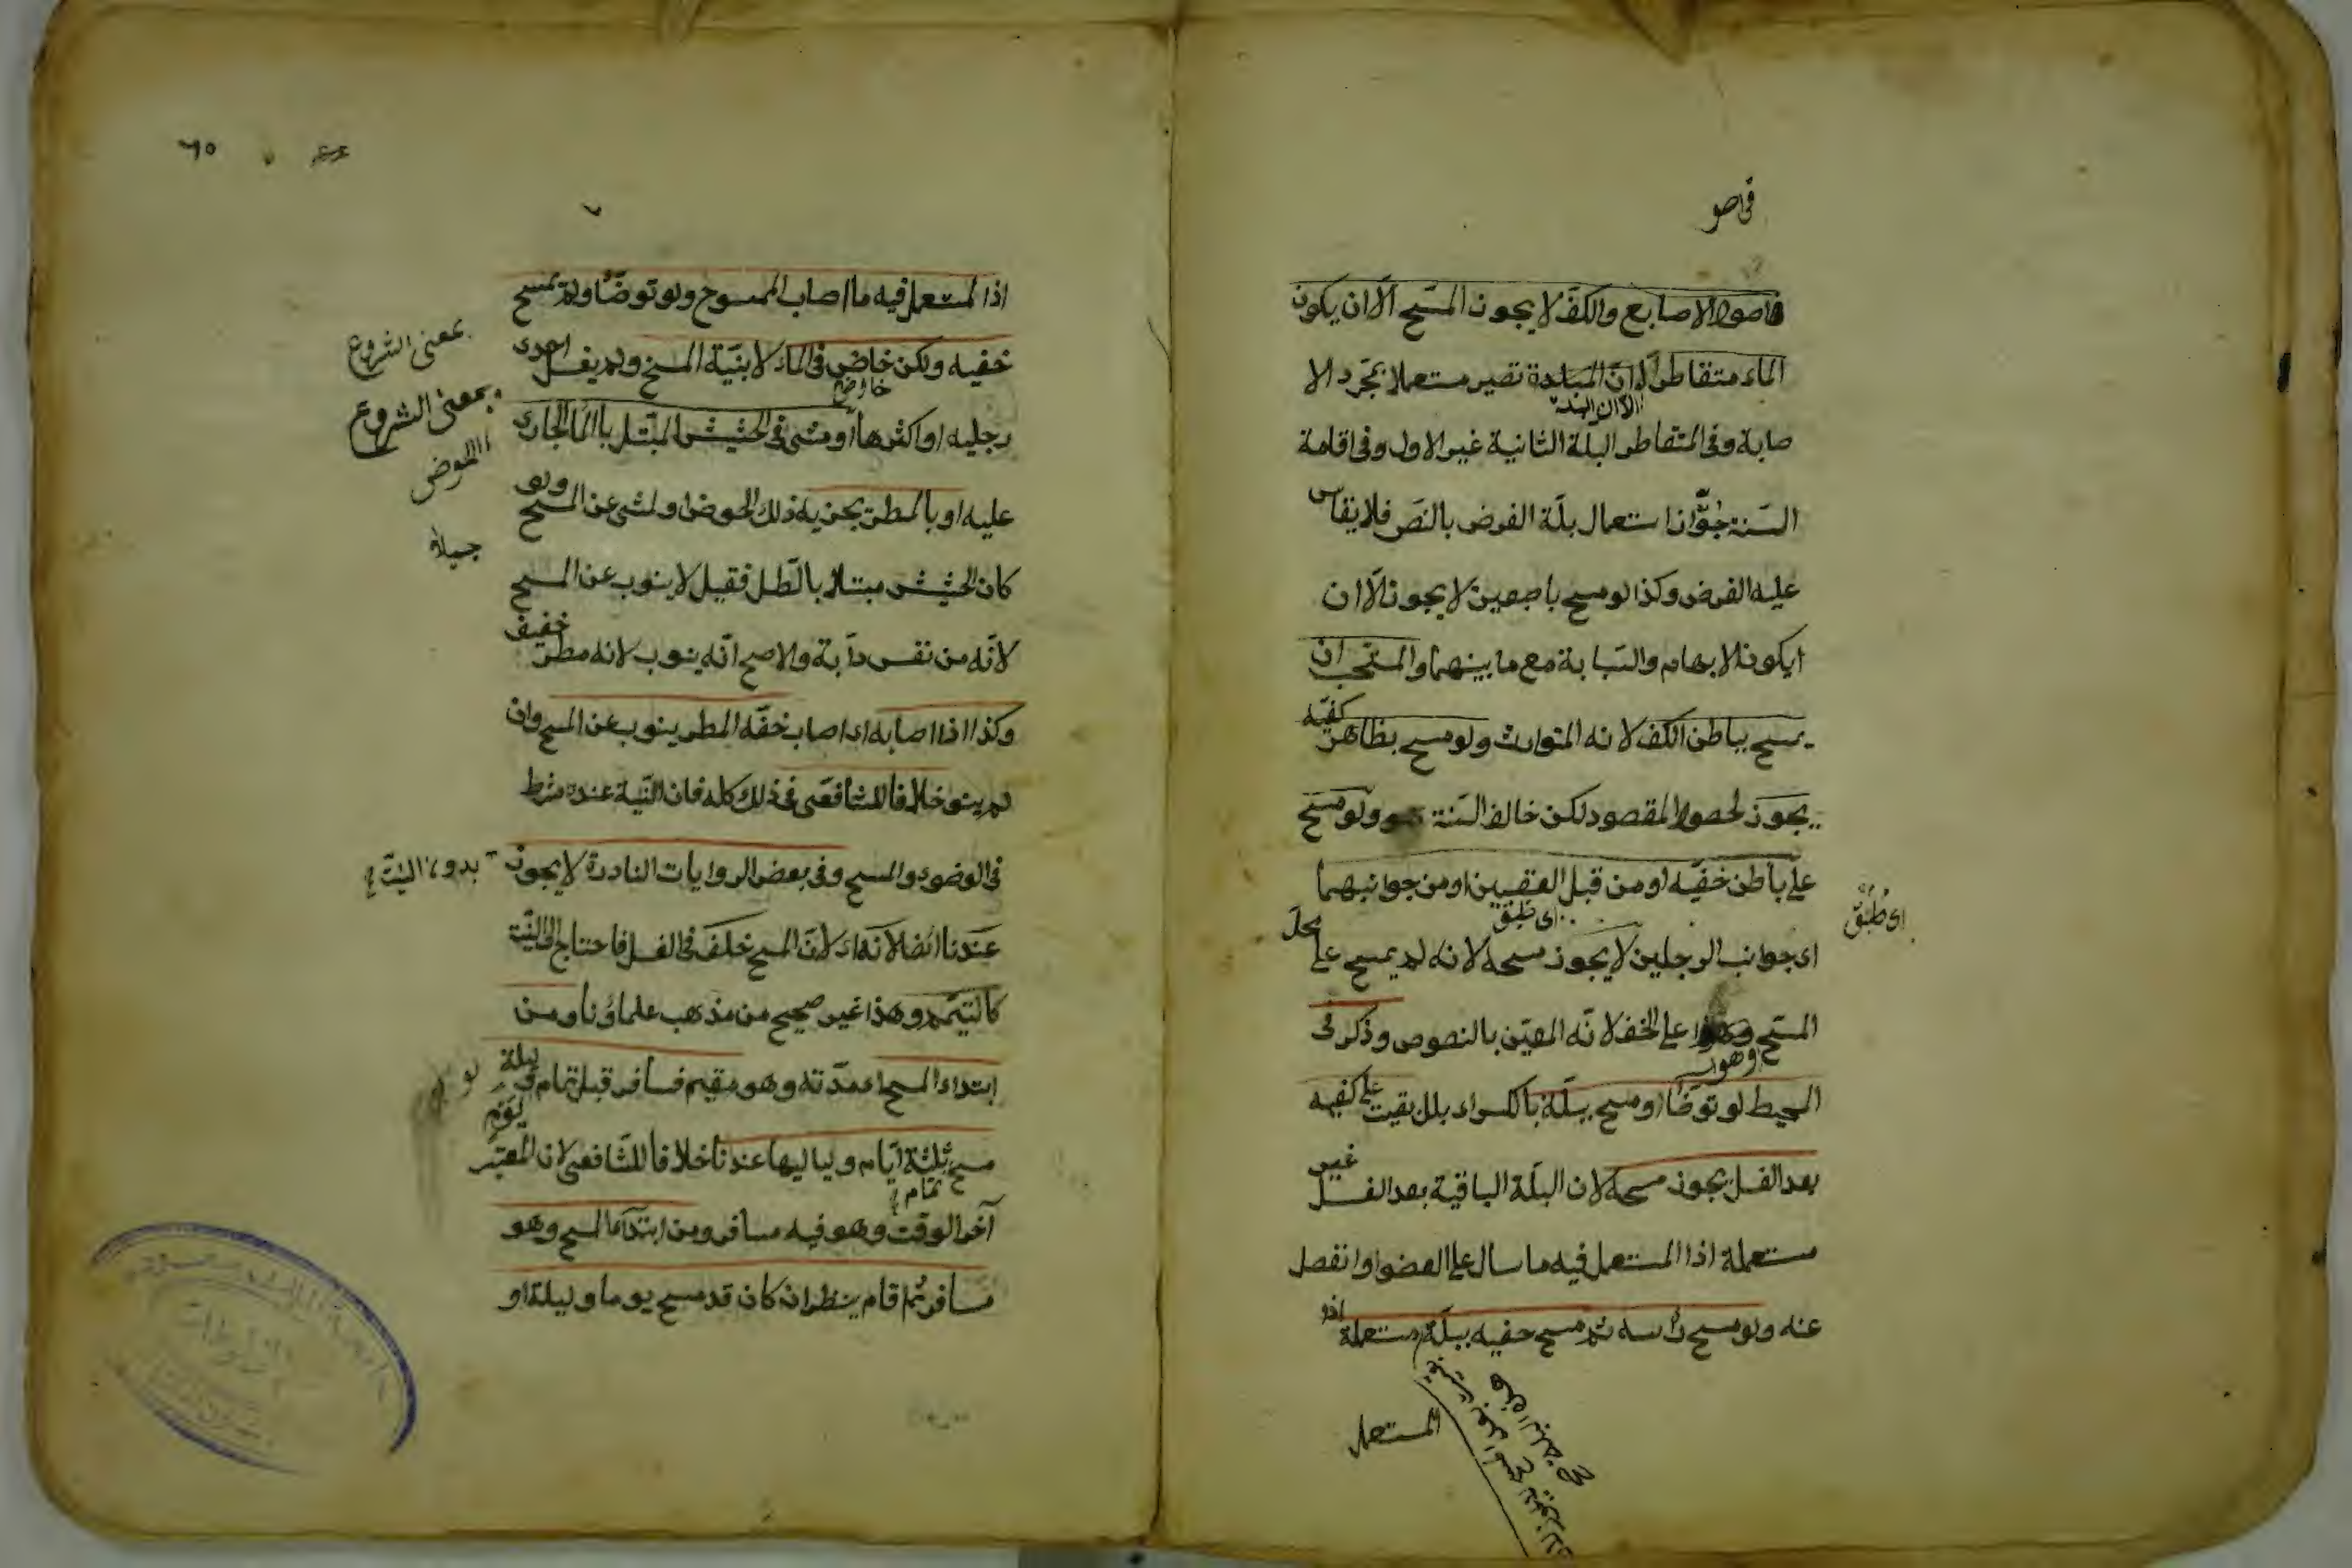 في اصو
فاصول الاصابع والكف لا يجوز المسح الا ان يكون
الماء متقاطرا لان البلة تصير مستعملا بمجرد الا
صابة وفي المتقاطر البلة الثانية غير الاول وفي اقامة
السنة جوّزنا استعمال بلة الفرض بالنص فلا يقاس
عليه الفرض وكذا لو مسح باصبعين لا يجوز الا ان
يكون الابهام والسبابة مع ما بينهما والمستحب ان
يمسح بباطن الكف لانه المتوارث ولو مسح بظاهر كفيه
يجوز لحصول المقصود لكن خالف السنة ولو مسح
على باطن خفيه او من قبل العقبين او من جوانبهما
اي جوانب الرجلين لا يجوز مسحه لانه لم يمسح على محل
المسح وهو اعلى الخف لانه المعين بالنصوص وذكر في
المحيط لو توضأ ومسح ببلة بالكسر اي بلل بقيت على كفيه
بعد الغسل يجوز مسحه لان البلة الباقية بعد الغسل غير
مستعملة اذا المستعمل فيه ما سال على العضو او انفصل
عنه ولو مسح رأسه ثم مسح خفيه ببلة مستعملة
المستعمل
٦٥
اذا المستعمل فيه ما اصاب الممسوح ولو توضأ ولم يمسح
خفيه ولكن خاض في الماء لا بنية المسح ولم يغسل احدى
رجليه او اكثرها او مشى في الحشيش المبتل بالماء الجاري
عليه او بالمطر يجزيه ذلك الخوض او لمشى عن المسح ولو
كان الحشيش مبتلا بالطل فقيل لا ينوب عن المسح
لانه من نفس دابة والاصح انه ينوب لانه مطر خفيف
وكذا اذا اصابه اي اصاب خفه المطر ينوب عن المسح وان
لم ينو خلافا للشافعي في ذلك كله فان النية عنده شرط
في الوضوء والمسح وفي بعض الروايات النادرة لا يجوز
عندنا ايضا لانه اي لان المسح خلف في الغسل فاحتاج الى النية
كالتيمم وهذا غير صحيح من مذهب علماؤنا ومن
ابتداء المسح اي مدته وهو مقيم فسافر قبل تمام يوم وليلة
مسح ثلثة ايام ولياليها عندنا خلافا للشافعي لان المعتبر
آخر الوقت وهو فيه مسافر ومن ابتداء المسح وهو
مسافر ثم اقام ينظر ان كان قد مسح يوما وليلة او
بمعنى الشروع
بمعنى الشروع
بدون النية
اي طبق